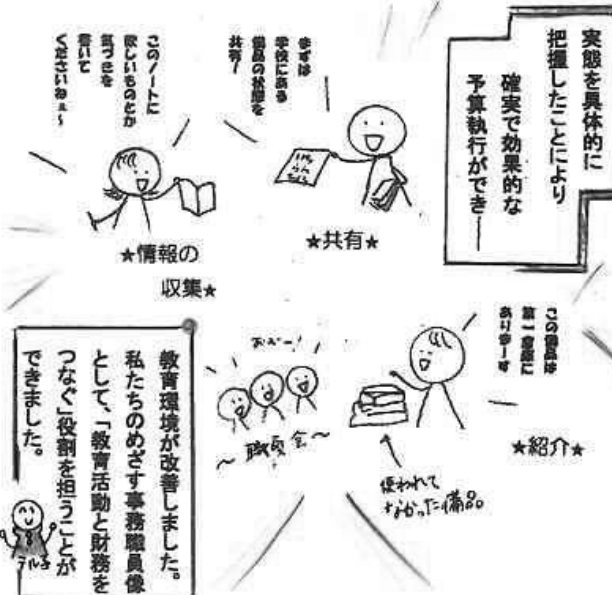 実態を具体的に
把握したことにより
確実で効果的な
予算執行ができ――
まずは
学校にある
備品の状態を
共有!
いち
らん
★共有★
このノートに
欲しいものとか
気づきを
書いて
くださいねぇ~
★情報の
収集★
この備品は
第一倉庫に
ありまーす
★紹介★
使われて
なかった備品
おおー!
~職員会~
教育環境が改善しました。
私たちのめざす事務職員像
として、「教育活動と財務を
つなぐ」役割を担うことが
できました。
テル子